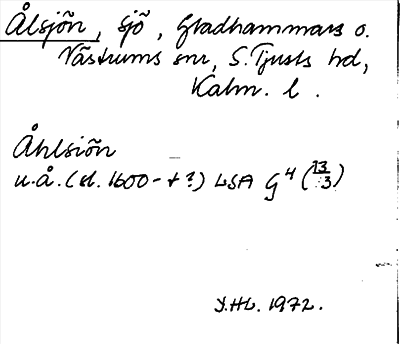 Ålsjön, sjö, Gladhammars o.
Västrums snr, S. Tjusts hd,
Kalm. l.
Åhlsiön
u.å. (sl. 1600-t ?) LSA G4 (13/3)
Y.HL. 1972.